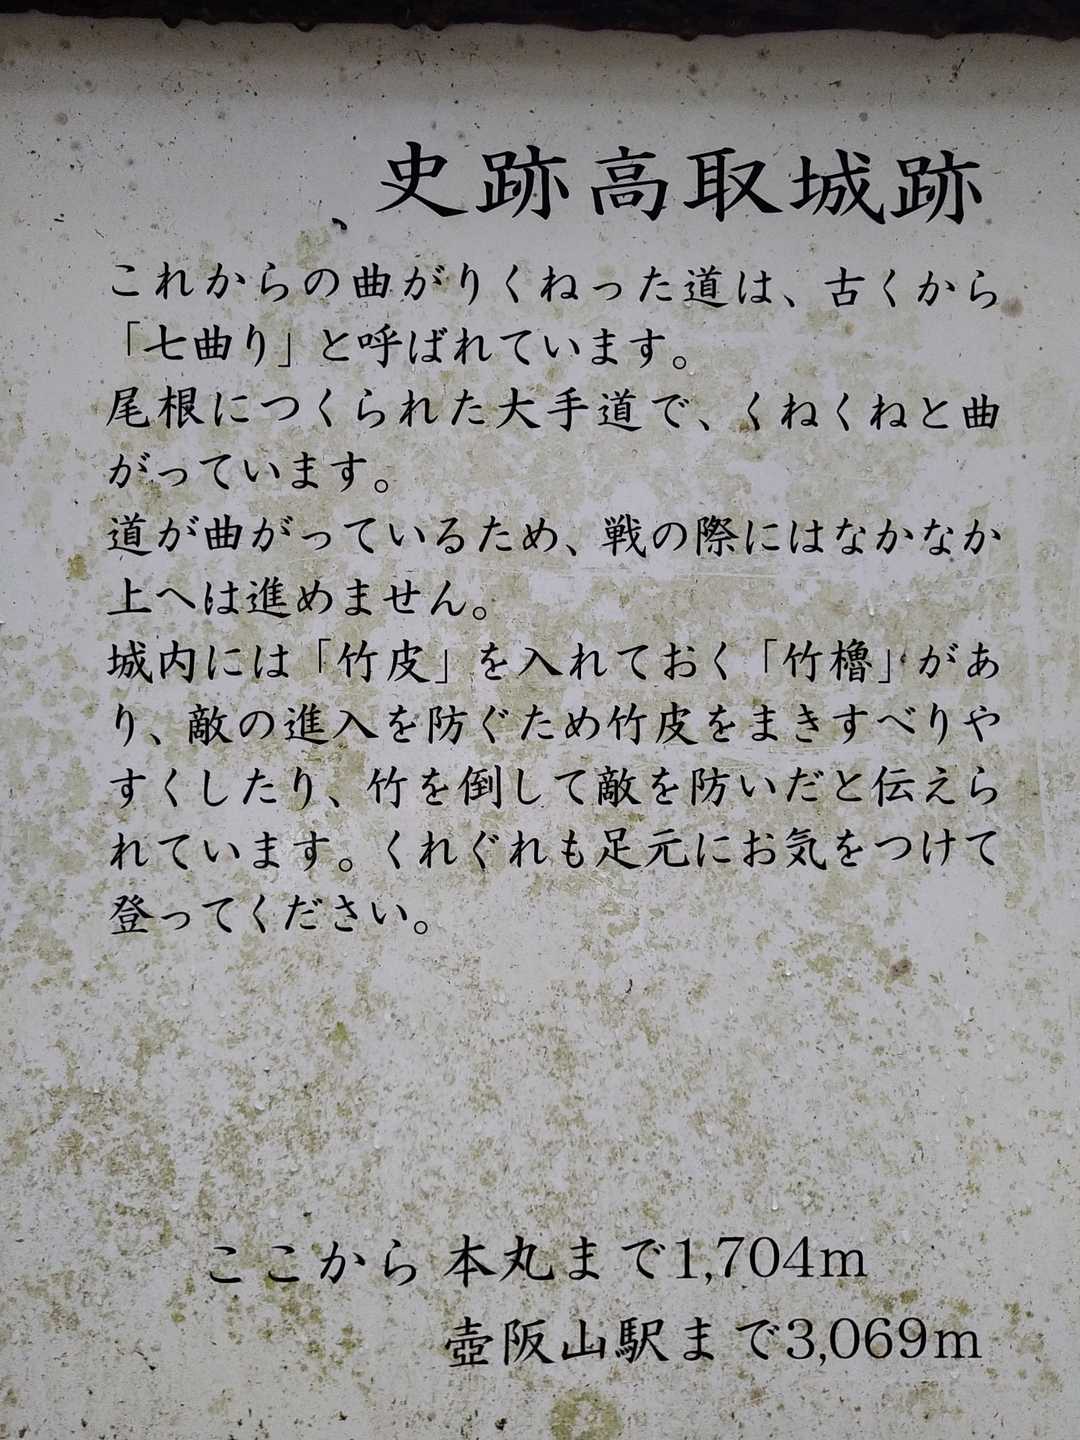 史跡高取城跡
これからの曲がりくねった道は、古くから
「七曲り」と呼ばれています。
尾根につくられた大手道で、くねくねと曲
がっています。
道が曲がっているため、戦の際にはなかなか
上へは進めません。
城内には「竹皮」を入れておく「竹櫓」があ
り、敵の進入を防ぐため竹皮をまきすべりや
すくしたり、竹を倒して敵を防いだと伝えら
れています。くれぐれも足元にお気をつけて
登ってください。
ここから 本丸まで1,704m
壺阪山駅まで3,069m